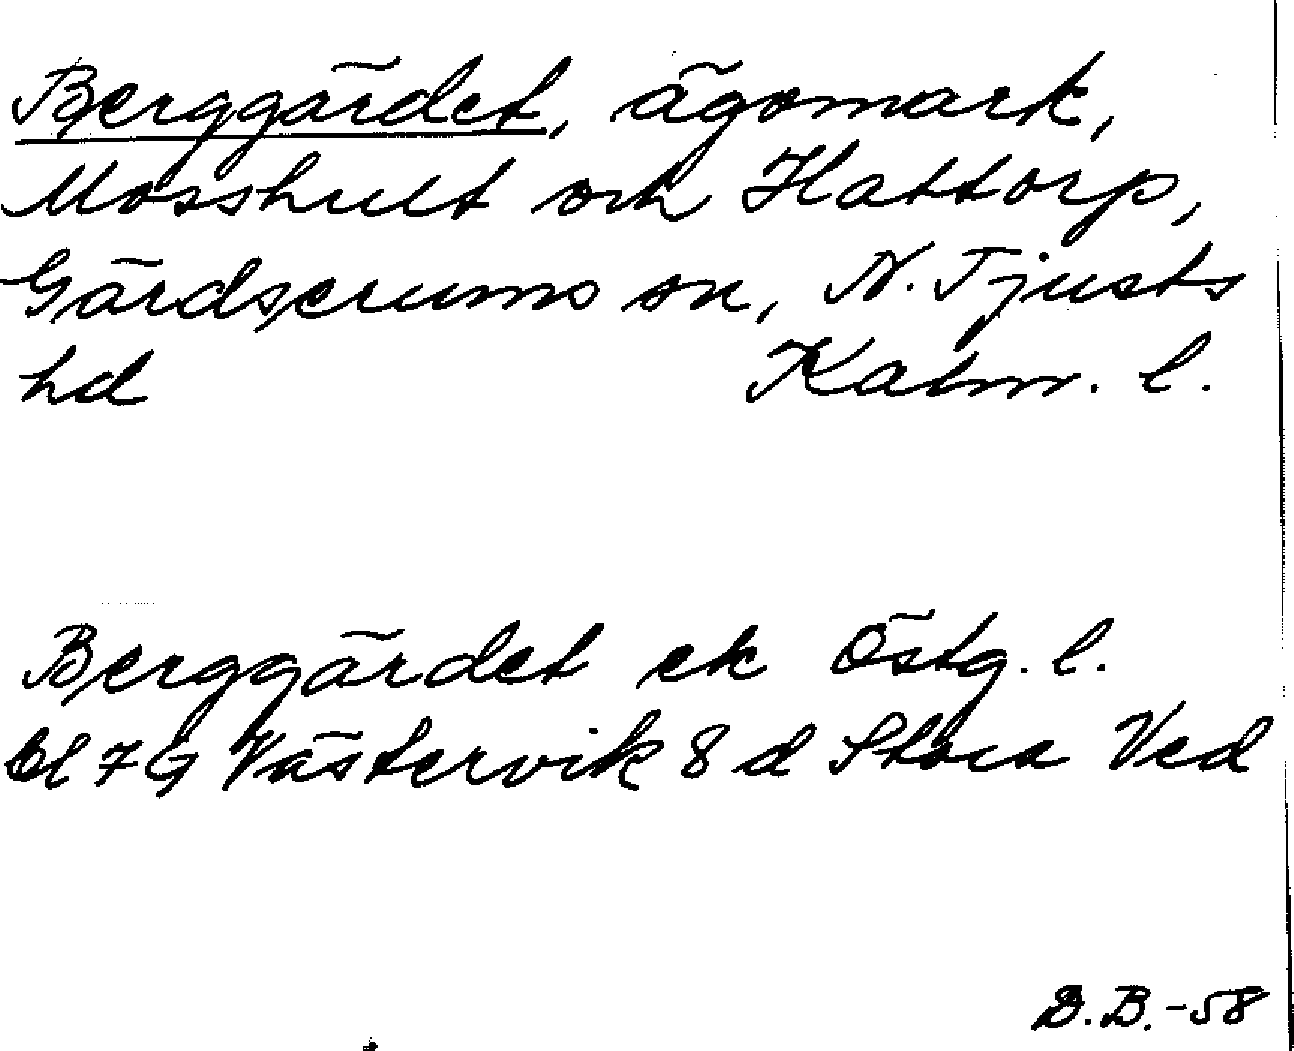 Berggärdet, ägomark,
Mosshult och Hattorp,
Gärdserums sn, N. Tjusts
hd Kalm. l.
Berggärdet ek Östg. l.
bl 7 G Västervik 8 d Stora Ved
B.B.-58